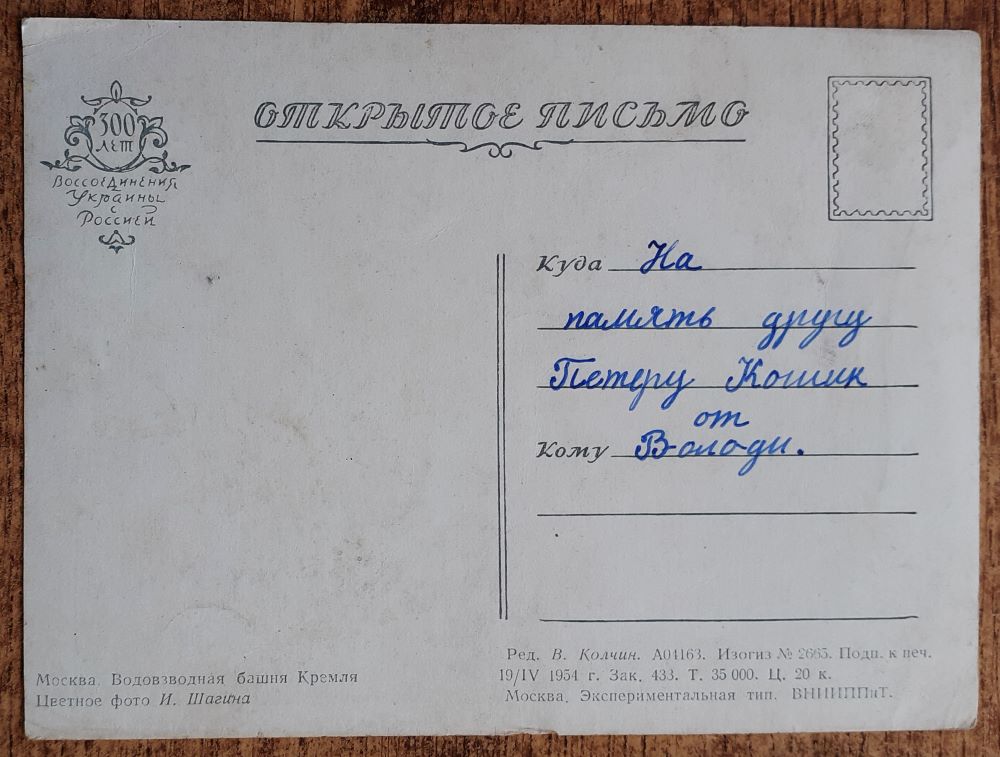 300
ЛЕТ
Воссоединения
Украины
с
Россией
ОТКРЫТОЕ ПИСЬМО
Куда На
память другу
Петеру Кошик
от
Кому Володи.
Москва. Водовзводная башня Кремля
Цветное фото И. Шагина
Ред. В. Колчин. А04163. Изогиз № 2665. Подп. к печ.
19/IV 1954 г. Зак. 433. Т. 35 000. Ц. 20 к.
Москва, Экспериментальная тип. ВНИИППиТ.